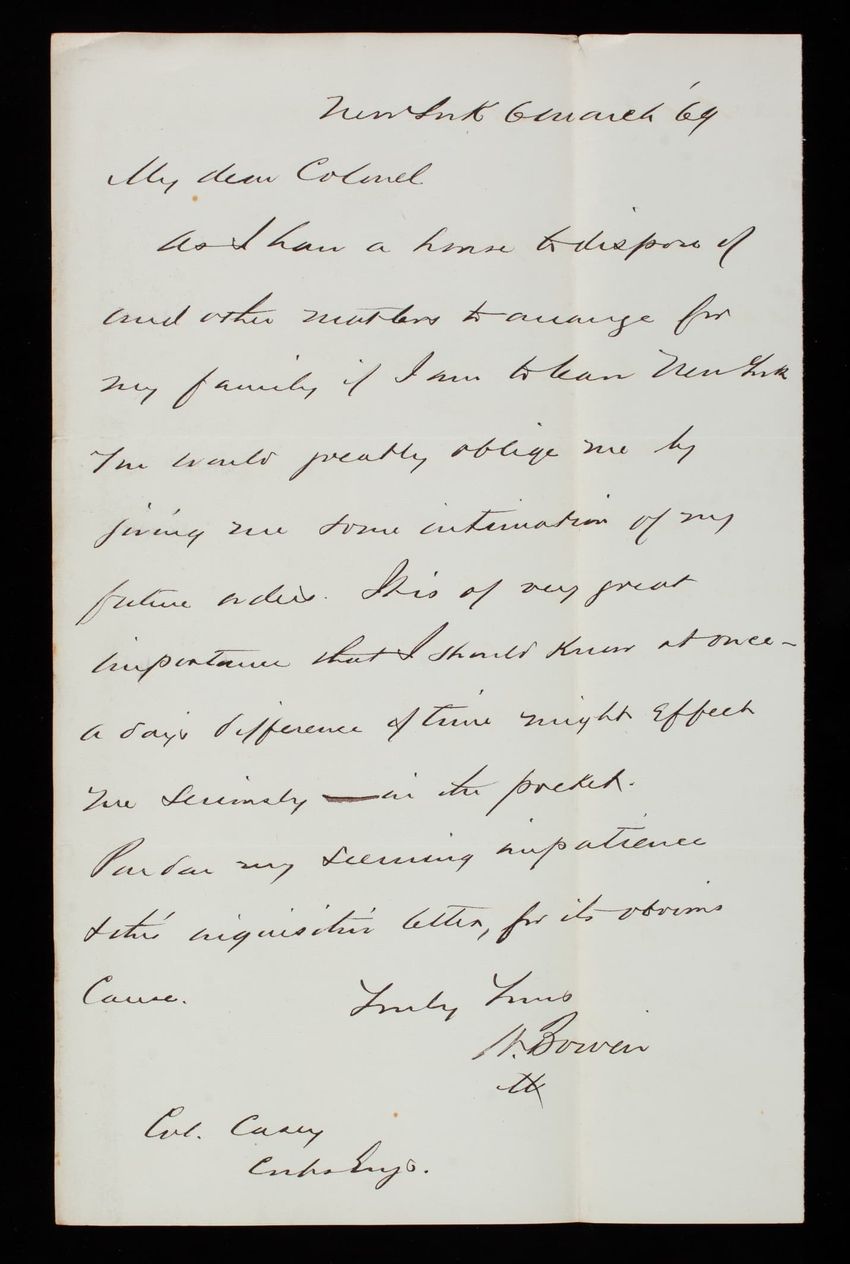 New York 6 March '69
My dear Colonel
As I have a house to dispose of
and other matters to arrange for
my family if I am to leave New York
You would greatly oblige me by
giving me some intimation of my
future orders. It is of very great
importance that I should know at once -
a day's difference of time might effect
me seriously — in the pocket.
Pardon my seeming impatience
& this inquisitive letter, for its obvious
Cause.
Truly Yours
N. Bowen
Col. Casey
Corps Engs.